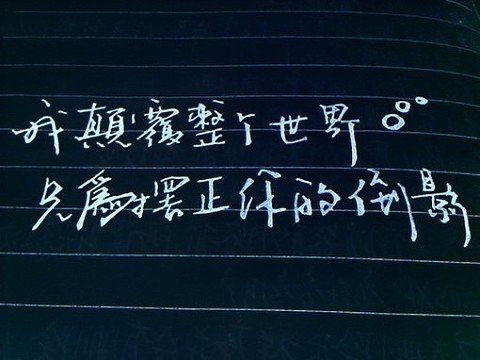 我顛覆整个世界。。。
只爲擺正你的倒影